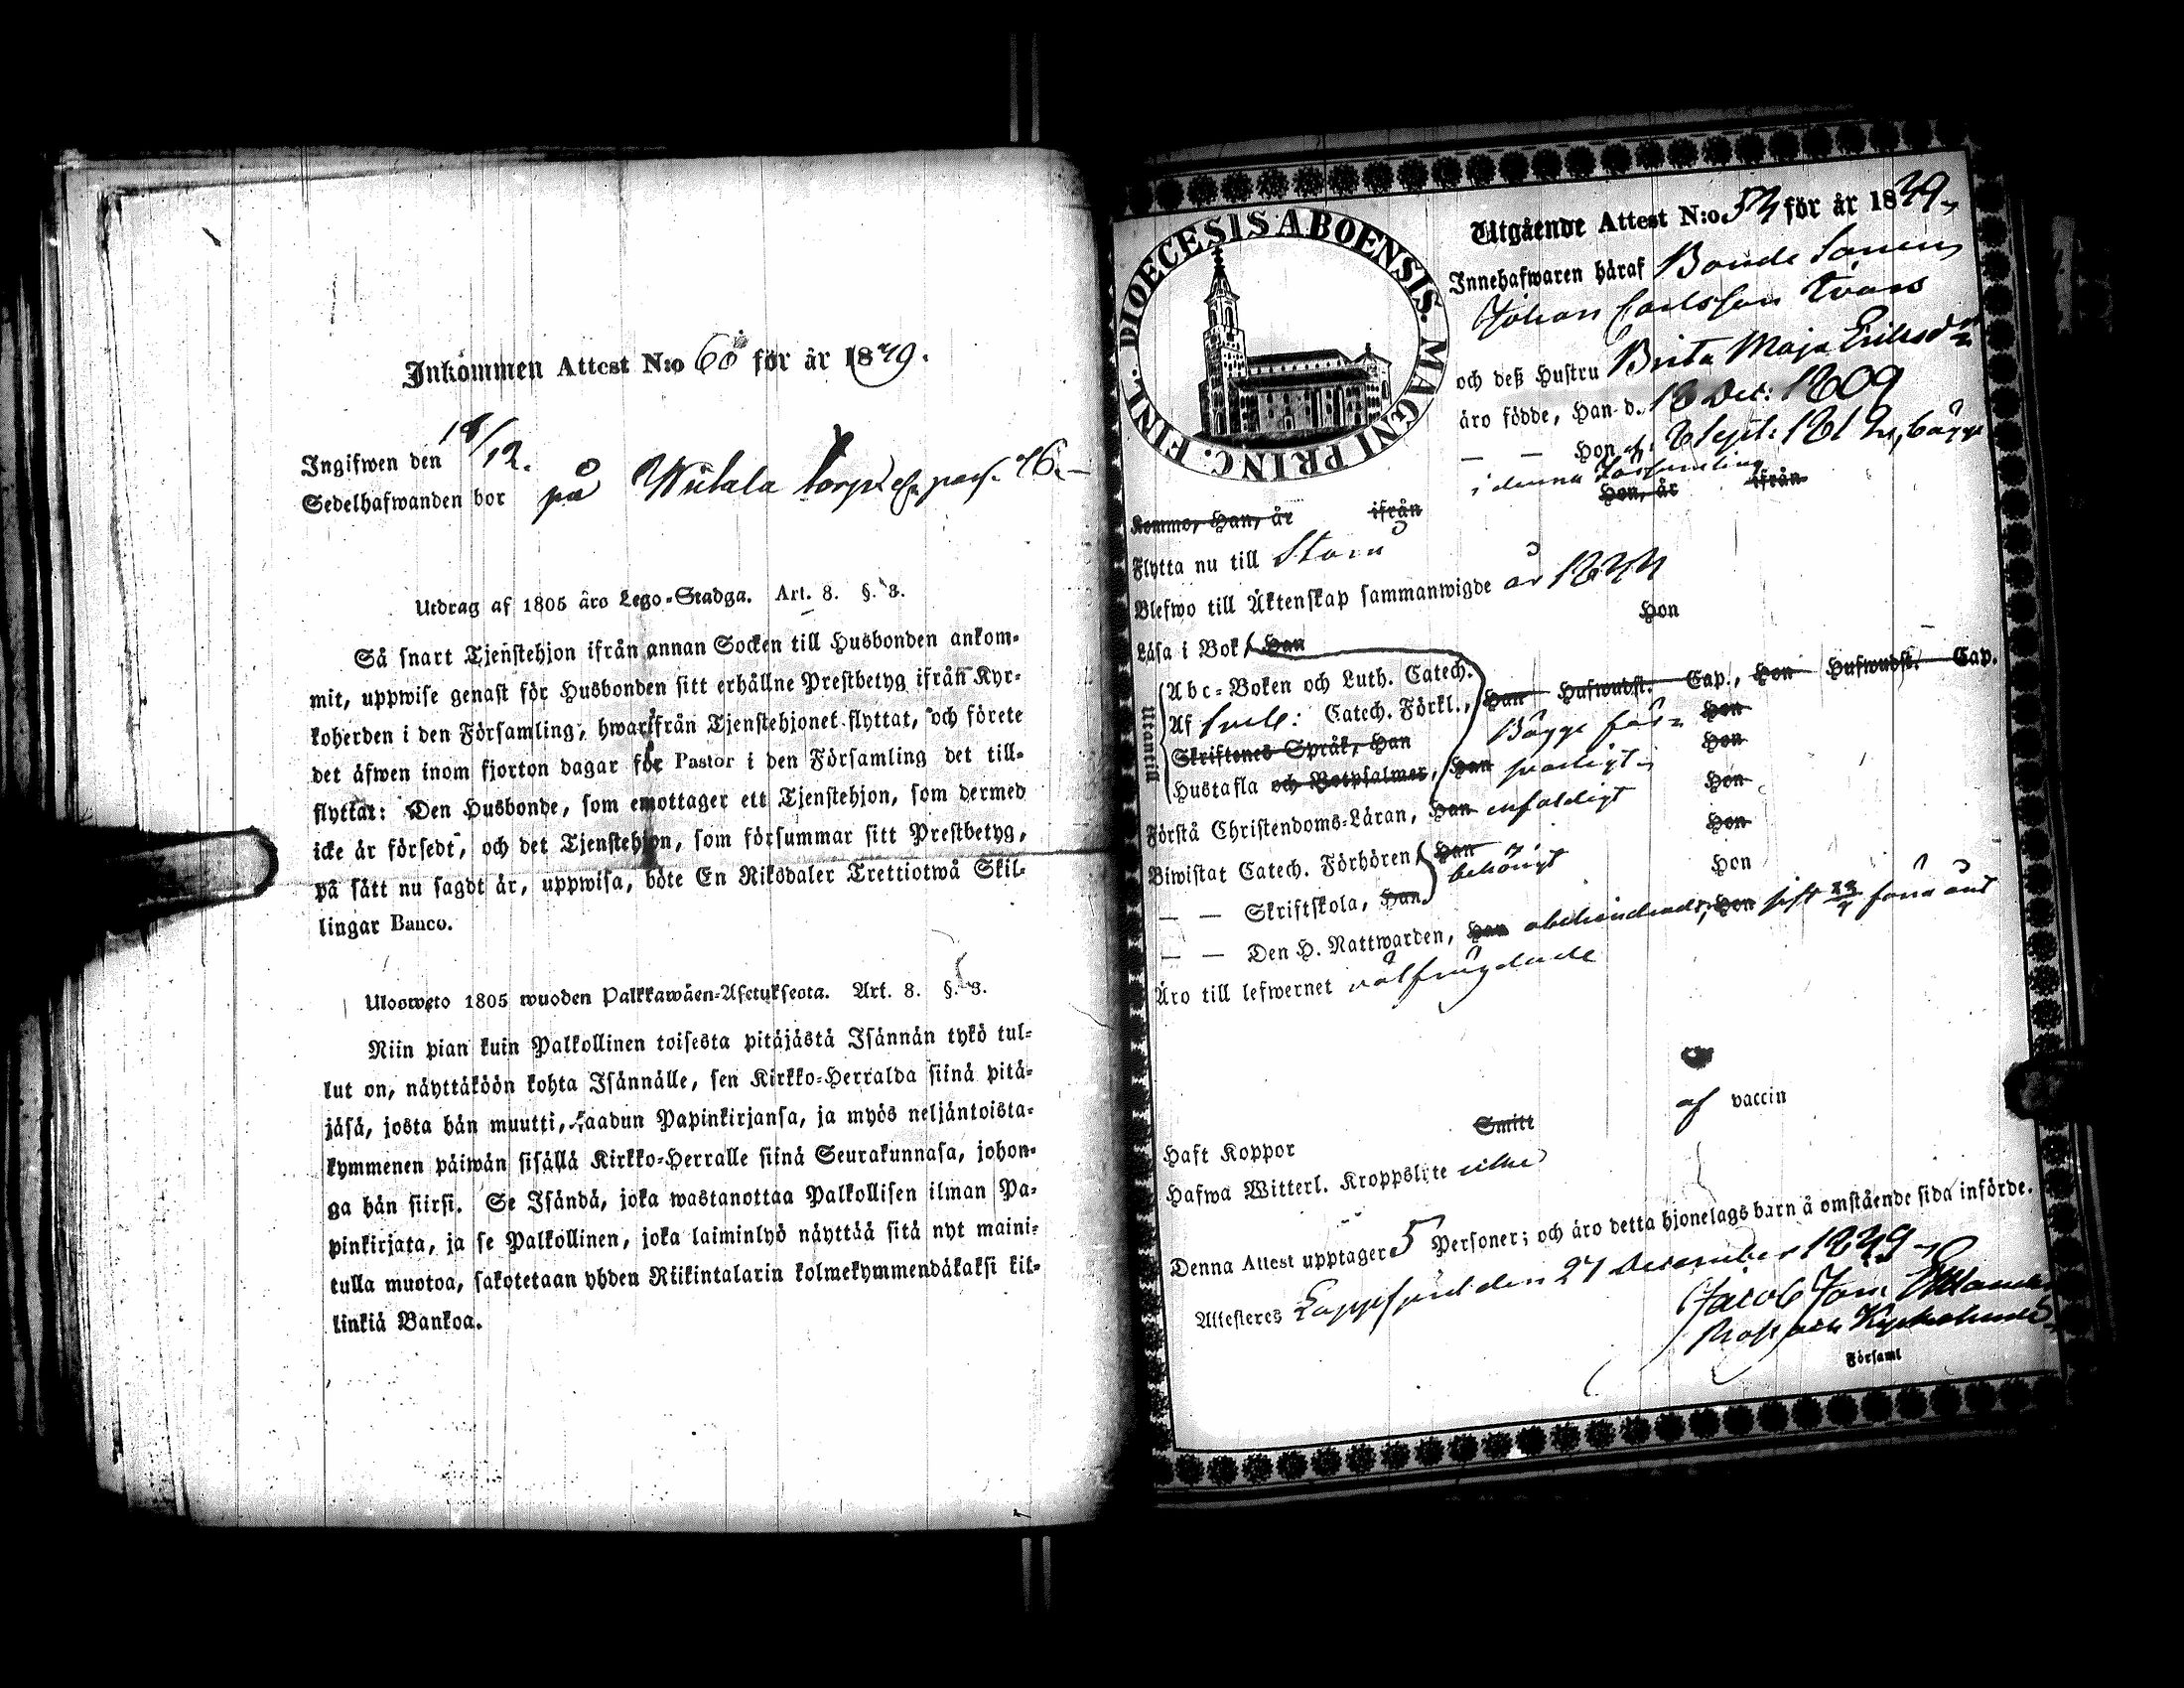 Inkommen Attest N:o 60 för år 1849.
Ingifwen den 18/12.
Sedelhafwanden bor på Wiitala torp pag. 76.
Utdrag af 1805 års Lego-Stadga. Art. 8. §. 3.
Så snart Tjenstehjon ifrån annan Socken till Husbonden ankom-
mit, uppwise genast för Husbonden sitt erhållne Prestbetyg ifrån Kyr-
koherden i den Församling, hwarifrån Tjenstehjonet flyttat, och förete
det äfwen inom fjorton dagar för Pastor i den Församling det till-
flyttat: Den Husbonde, som emottager ett Tjenstehjon, som dermed
icke är försedt, och det Tjenstehjon, som försummar sitt Prestbetyg,
på sätt nu sagdt är, uppwisa, böte En Riksdaler Trettiotwå Skil-
lingar Banco.
Ulosweto 1805 wuoden Palkkawäen-Asetuksesta. Art. 8. §. 3.
Niin pian kuin Palkollinen toisesta pitäjästä Isännän tykö tul-
lut on, näyttäköön kohta Isännälle, sen Kirkko-Herralda siinä pitä-
jäsä, josta hän muutti, saadun Papinkirjansa, ja myös neljäntoista-
kymmenen päiwän sisällä Kirkko-Herralle siinä Seurakunnasa, johon-
ga hän siirsi. Se Isändä, joka wastanottaa Palkollisen ilman Pa-
pinkirjata, ja se Palkollinen, joka laiminlyö näyttää sitä nyt maini-
tulla muotoa, sakotetaan yhden Riikintalarin kolmekymmendäkaksi kil-
linkiä Bankoa.
DIOECESIS ABOENSIS. MAGNI PRINC. FINL.
Utgående Attest N:o 54 för år 1849
Innehafwaren häraf Bonde Sonen
Johan Carlsson Kvars
och deß Hustru Brita Maja Eriksdr
äro födde, Han d. 18 Dec: 1809
— — Hon d. 8 Sept: 1812, bägge
i denna Församling
Kommo, Han, år ifrån Hon, år ifrån
Flytta nu till Storå
Blefwo till Äktenskap sammanwigde år 1844
Läsa i Bok, Han Hon
Utantill
Abc-Boken och Luth. Catech.
Af Sveb: Catech. Förkl., Han Hufwudst. Cap., Hon Hufwudst. Cap.
Skriftenes Språk, Han Bägge för- Hon
Hustafla och Botpsalmer, Han swarligt Hon
Förstå Christendoms-Läran, Han enfaldigt Hon
Biwistat Catech. Förhören, Han Hon
— — Skriftskola, Han behörigt Hon
— — Den H. Nattwarden, Han obehindrade, Hon sist 23/9 sistl. år
Äro till lefwernet wälfrägdade
Haft Koppor Smitt af vaccin
Hafwa Witterl. Kroppslyte
Denna Attest upptager 5 Personer; och äro detta hjonelags barn å omstående sida införde.
Attesteres Lappfjerd den 27 December 1849
Jacob Jon.
Prost och Kyrkoherde
Församl